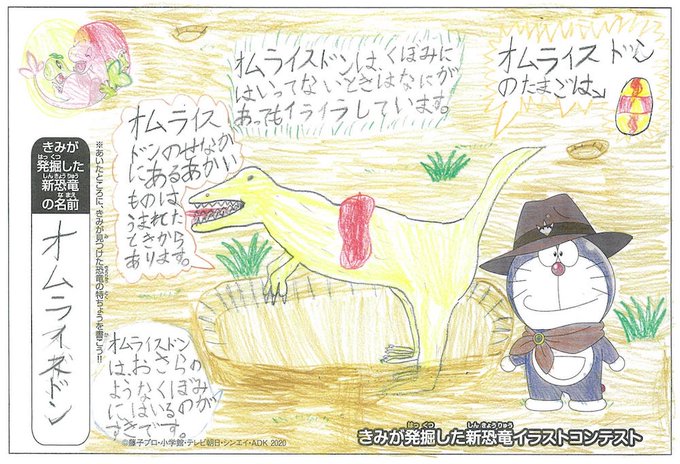 オムライスドンは、くぼみに
はいってないときはなにが
あってもイライラしています。
オムライスドン
のたまごは、
オムライス
ドンのせなか
にあるあかい
ものは
うまれた
ときから
あります。
きみが
はっくつ
発掘した
しんきょうりゅう
新恐竜
なまえ
の名前
オムライスドン
※あいたところに、きみが見つけた恐竜の特ちょうを書こう!!
オムライスドン
は、おさらの
ようなくぼみ
にはいるのが
すきです。
©藤子プロ・小学館・テレビ朝日・シンエイ・ADK 2020
はっくつ しんきょうりゅう
きみが発掘した新恐竜イラストコンテスト